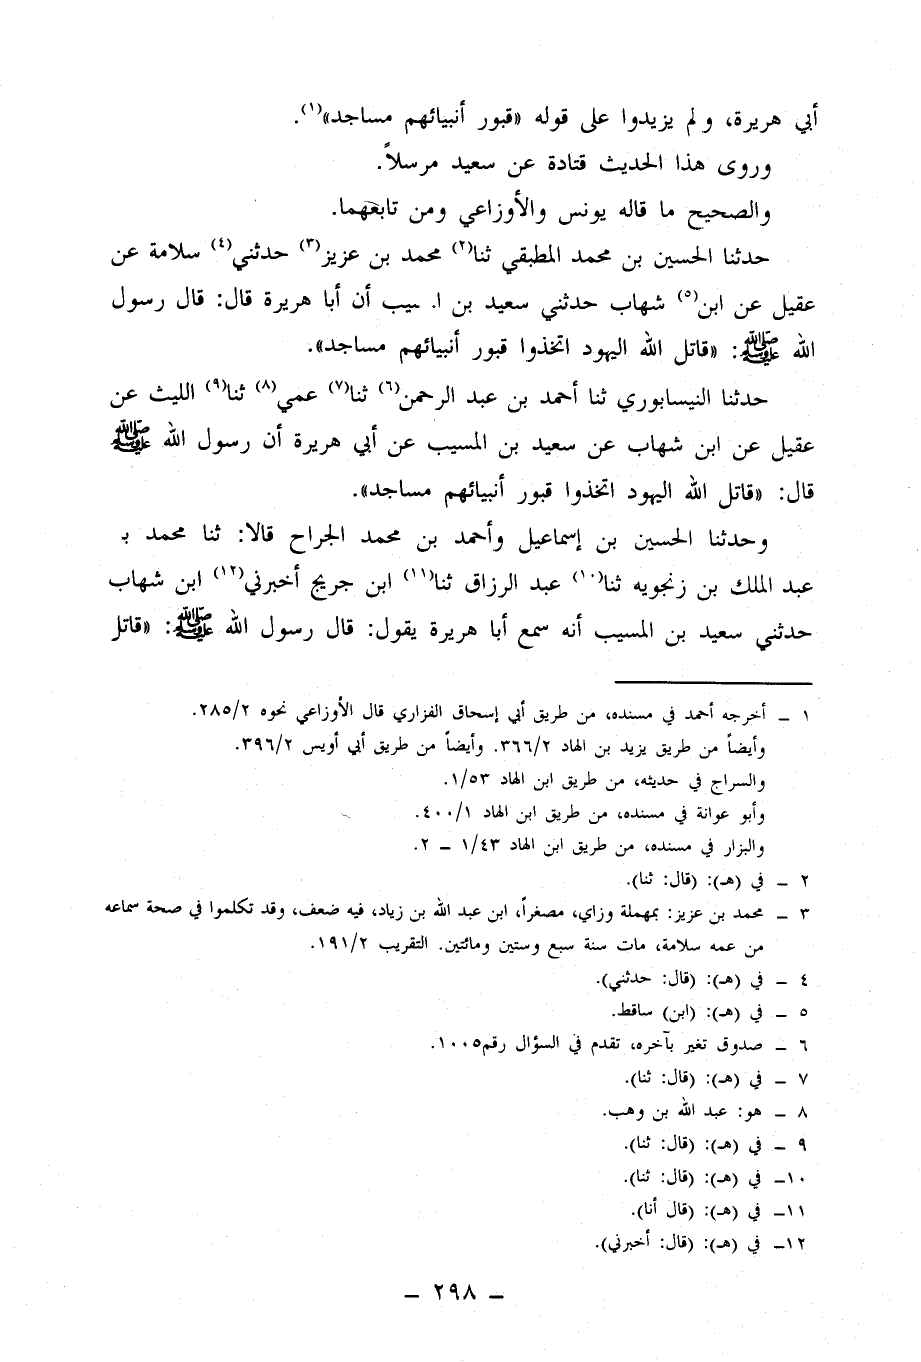 أبي هريرة، ولم يزيدوا على قوله «قبور أنبيائهم مساجد»(١).
وروى هذا الحديث قتادة عن سعيد مرسلاً.
والصحيح ما قاله يونس والأوزاعي ومن تابعهما.
حدثنا الحسين بن محمد المطبقي ثنا(٢) محمد بن عزيز(٣) حدثني(٤) سلامة عن
عقيل عن ابن(٥) شهاب حدثني سعيد بن ا. ـيب أن أبا هريرة قال: قال رسول
الله ﷺ: «قاتل الله اليهود اتخذوا قبور أنبيائهم مساجد».
حدثنا النيسابوري ثنا أحمد بن عبد الرحمن(٦) ثنا(٧) عمي(٨) ثنا(٩) الليث عن
عقيل عن ابن شهاب عن سعيد بن المسيب عن أبي هريرة أن رسول الله ﷺ
قال: «قاتل الله اليهود اتخذوا قبور أنبيائهم مساجد».
وحدثنا الحسين بن إسماعيل وأحمد بن محمد الجراح قالا: ثنا محمد بـ
عبد الملك بن زنجويه ثنا(١٠) عبد الرزاق ثنا(١١) ابن جريج أخبرني(١٢) ابن شهاب
حدثني سعيد بن المسيب أنه سمع أبا هريرة يقول: قال رسول الله ﷺ: «قاتل
١ ـ أخرجه أحمد في مسنده، من طريق أبي إسحاق الفزاري قال الأوزاعي نحوه ٢٨٥/٢.
وأيضاً من طريق يزيد بن الهاد ٣٦٦/٢. وأيضاً من طريق أبي أويس ٣٩٦/٢.
والسراج في حديثه، من طريق ابن الهاد ١/٥٣.
وأبو عوانة في مسنده، من طريق ابن الهاد ٤٠٠/١.
والبزار في مسنده، من طريق ابن الهاد ١/٤٣ ـ ٢.
٢ ـ في (هـ): (قال: ثنا).
٣ ـ محمد بن عزيز: بمهملة وزاي، مصغراً، ابن عبد الله بن زياد، فيه ضعف، وقد تكلموا في صحة سماعه
من عمه سلامة، مات سنة سبع وستين ومائتين. التقريب ١٩١/٢.
٤ ـ في (هـ): (قال: حدثني).
٥ ـ في (هـ): (ابن) ساقط.
٦ ـ صدوق تغير بآخره، تقدم في السؤال رقم١٠٠٥.
٧ ـ في (هـ): (قال: ثنا).
٨ ـ هو: عبد الله بن وهب.
٩ ـ في (هـ): (قال: ثنا).
١٠ـ في (هـ): (قال: ثنا).
١١ـ في (هـ): (قال أنا).
١٢ـ في (هـ): (قال: أخبرني).
ـ ٢٩٨ ـ